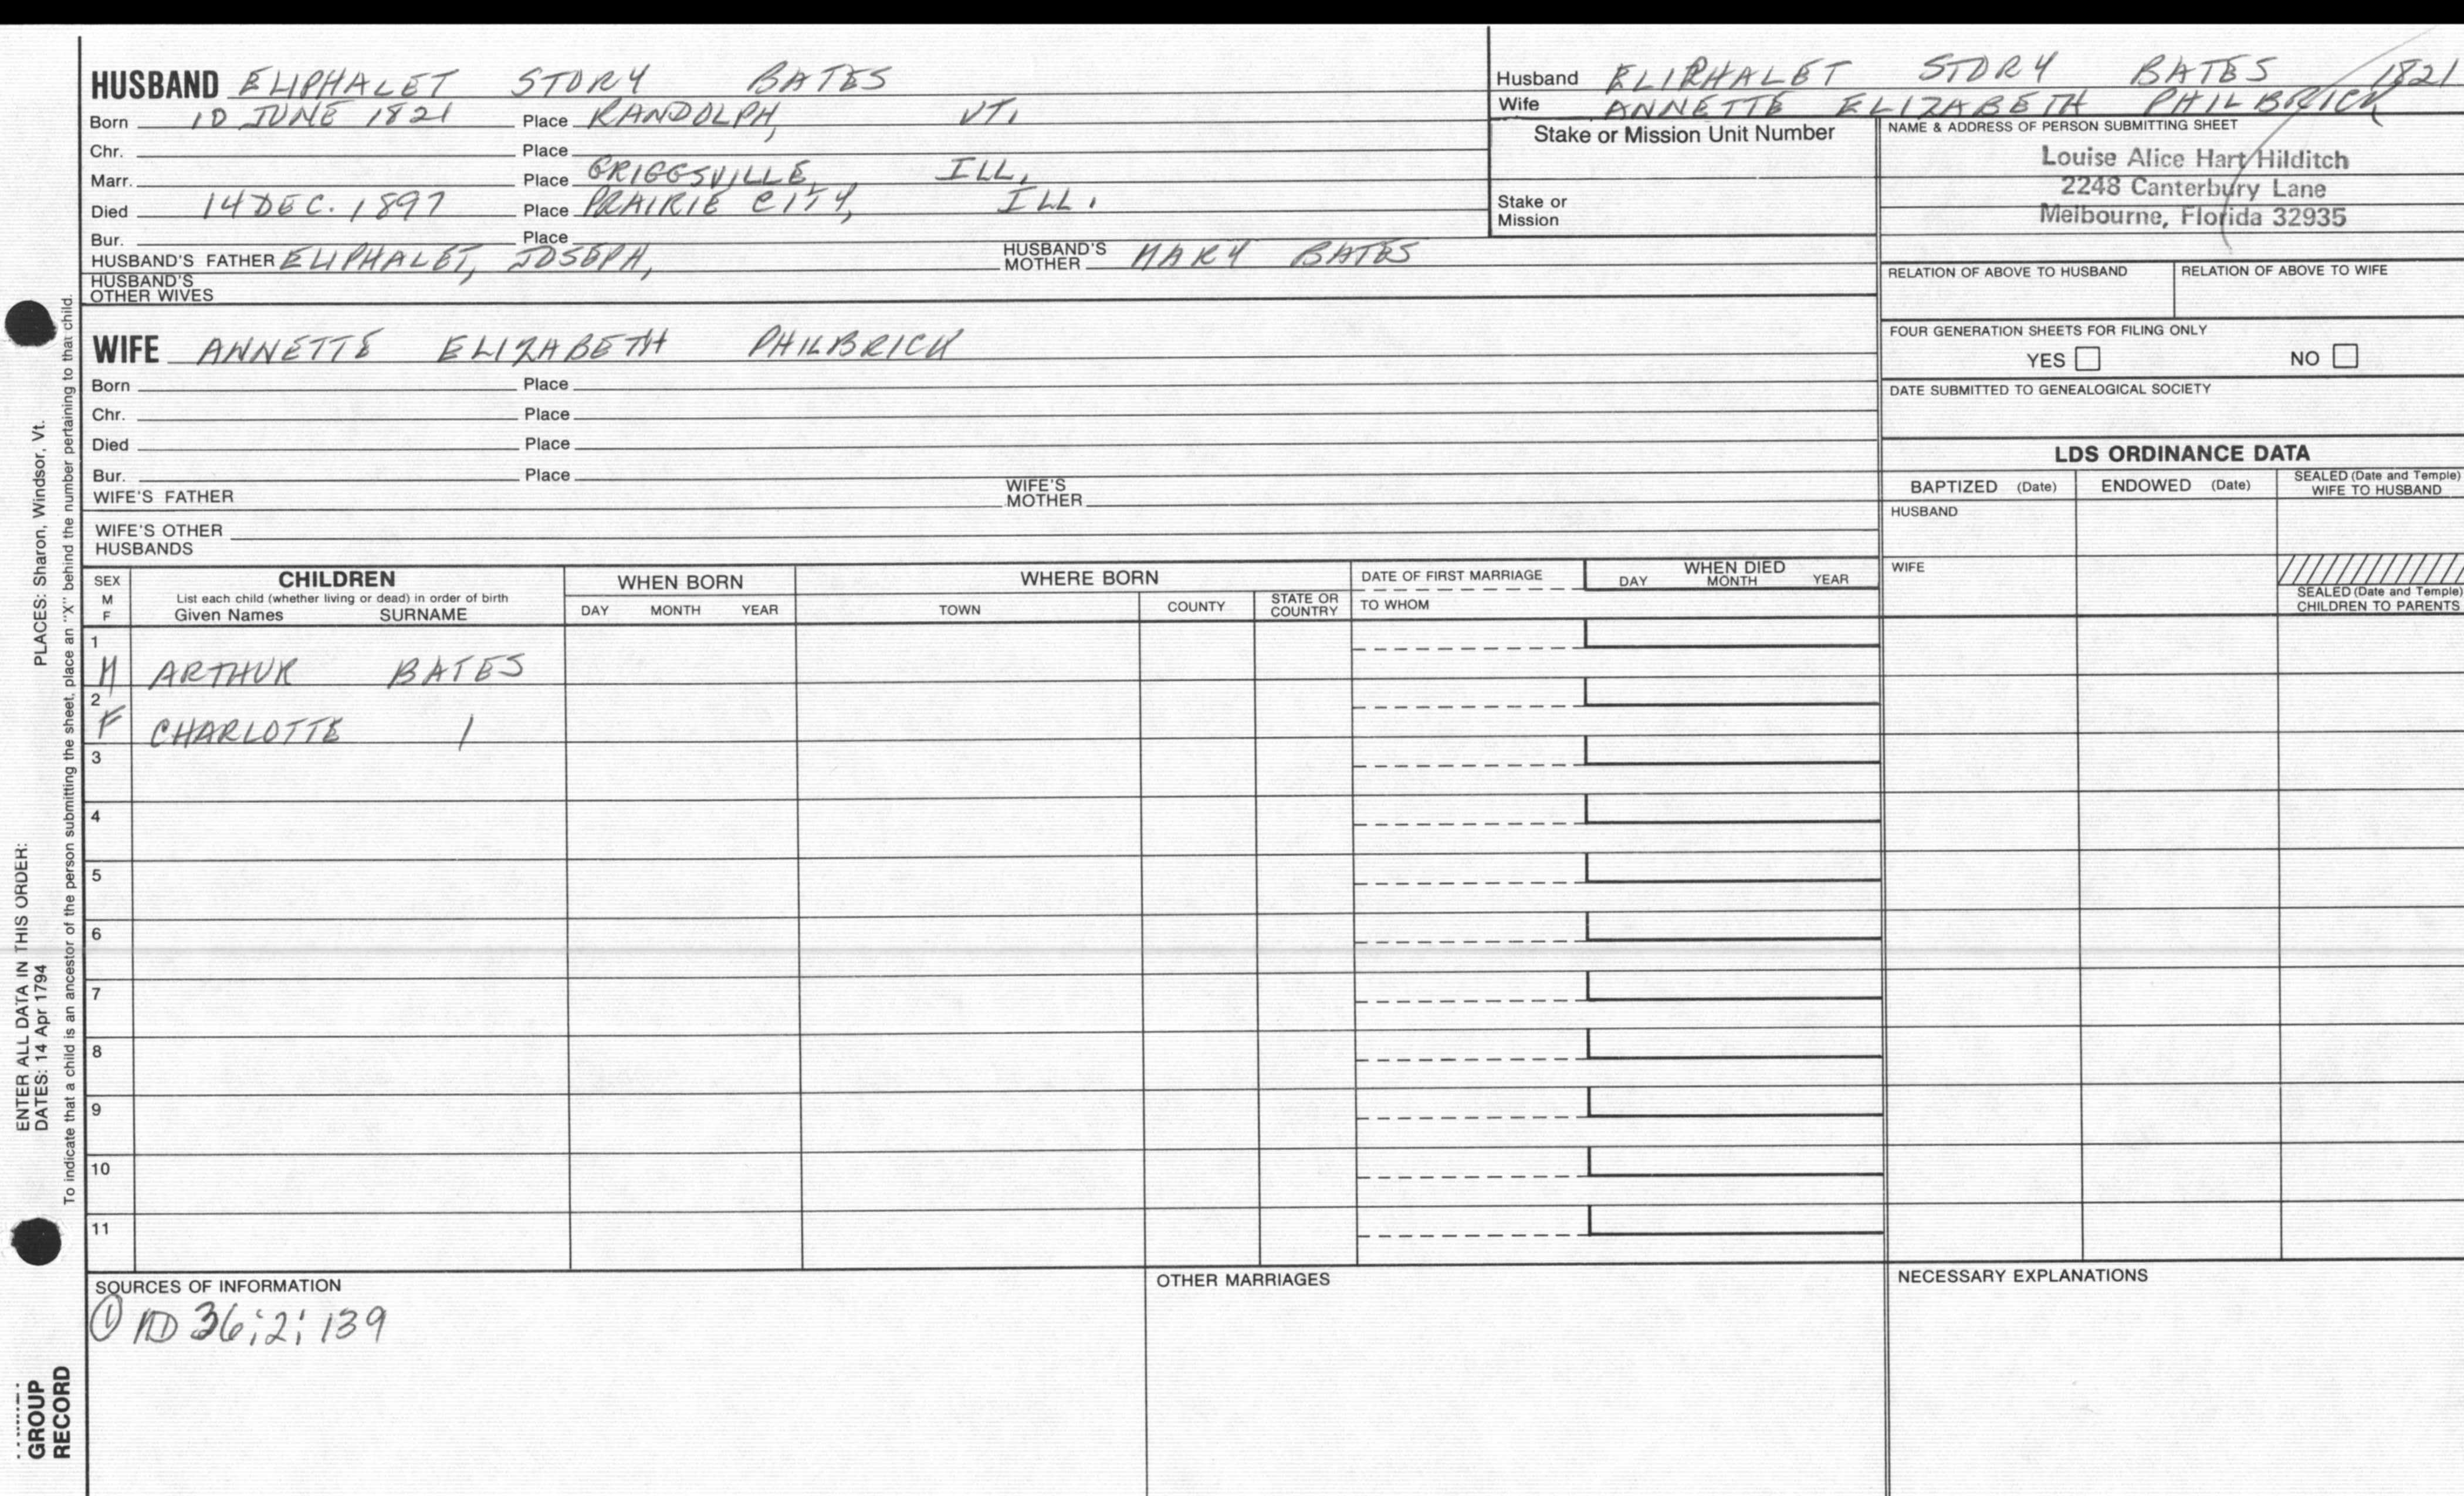 HUSBAND ELIPHALET STORY BATES
Born 10 JUNE 1821 Place RANDOLPH, VT.
Chr. Place
Marr. Place GRIGGSVILLE, ILL.
Died 14 DEC. 1897 Place PRAIRIE CITY, ILL.
Bur. Place
HUSBAND'S FATHER ELIPHALET, JOSEPH, HUSBAND'S MOTHER MARY BATES
HUSBAND'S OTHER WIVES
Husband ELIPHALET STORY BATES 1821
Wife ANNETTE ELIZABETH PHILBRICK
Stake or Mission Unit Number
Stake or
Mission
NAME & ADDRESS OF PERSON SUBMITTING SHEET
Louise Alice Hart Hilditch
2248 Canterbury Lane
Melbourne, Florida 32935
RELATION OF ABOVE TO HUSBAND RELATION OF ABOVE TO WIFE
FOUR GENERATION SHEETS FOR FILING ONLY
YES NO
DATE SUBMITTED TO GENEALOGICAL SOCIETY
WIFE ANNETTE ELIZABETH PHILBRICK
Born Place
Chr. Place
Died Place
Bur. Place
WIFE'S FATHER WIFE'S MOTHER
WIFE'S OTHER
HUSBANDS
LDS ORDINANCE DATA
BAPTIZED (Date) ENDOWED (Date) SEALED (Date and Temple) WIFE TO HUSBAND
HUSBAND
WIFE
SEALED (Date and Temple)
CHILDREN TO PARENTS
SEX M F
CHILDREN
List each child (whether living or dead) in order of birth
Given Names SURNAME
WHEN BORN
DAY MONTH YEAR
WHERE BORN
TOWN COUNTY STATE OR COUNTRY
DATE OF FIRST MARRIAGE
TO WHOM
WHEN DIED
DAY MONTH YEAR
1
M ARTHUR BATES
2
F CHARLOTTE /
3
4
5
6
7
8
9
10
11
SOURCES OF INFORMATION
① ND 36;2;139
OTHER MARRIAGES
NECESSARY EXPLANATIONS
ENTER ALL DATA IN THIS ORDER:
DATES: 14 Apr 1794 PLACES: Sharon, Windsor, Vt.
To indicate that a child is an ancestor of the person submitting the sheet, place an "X" behind the number pertaining to that child.
GROUP
RECORD